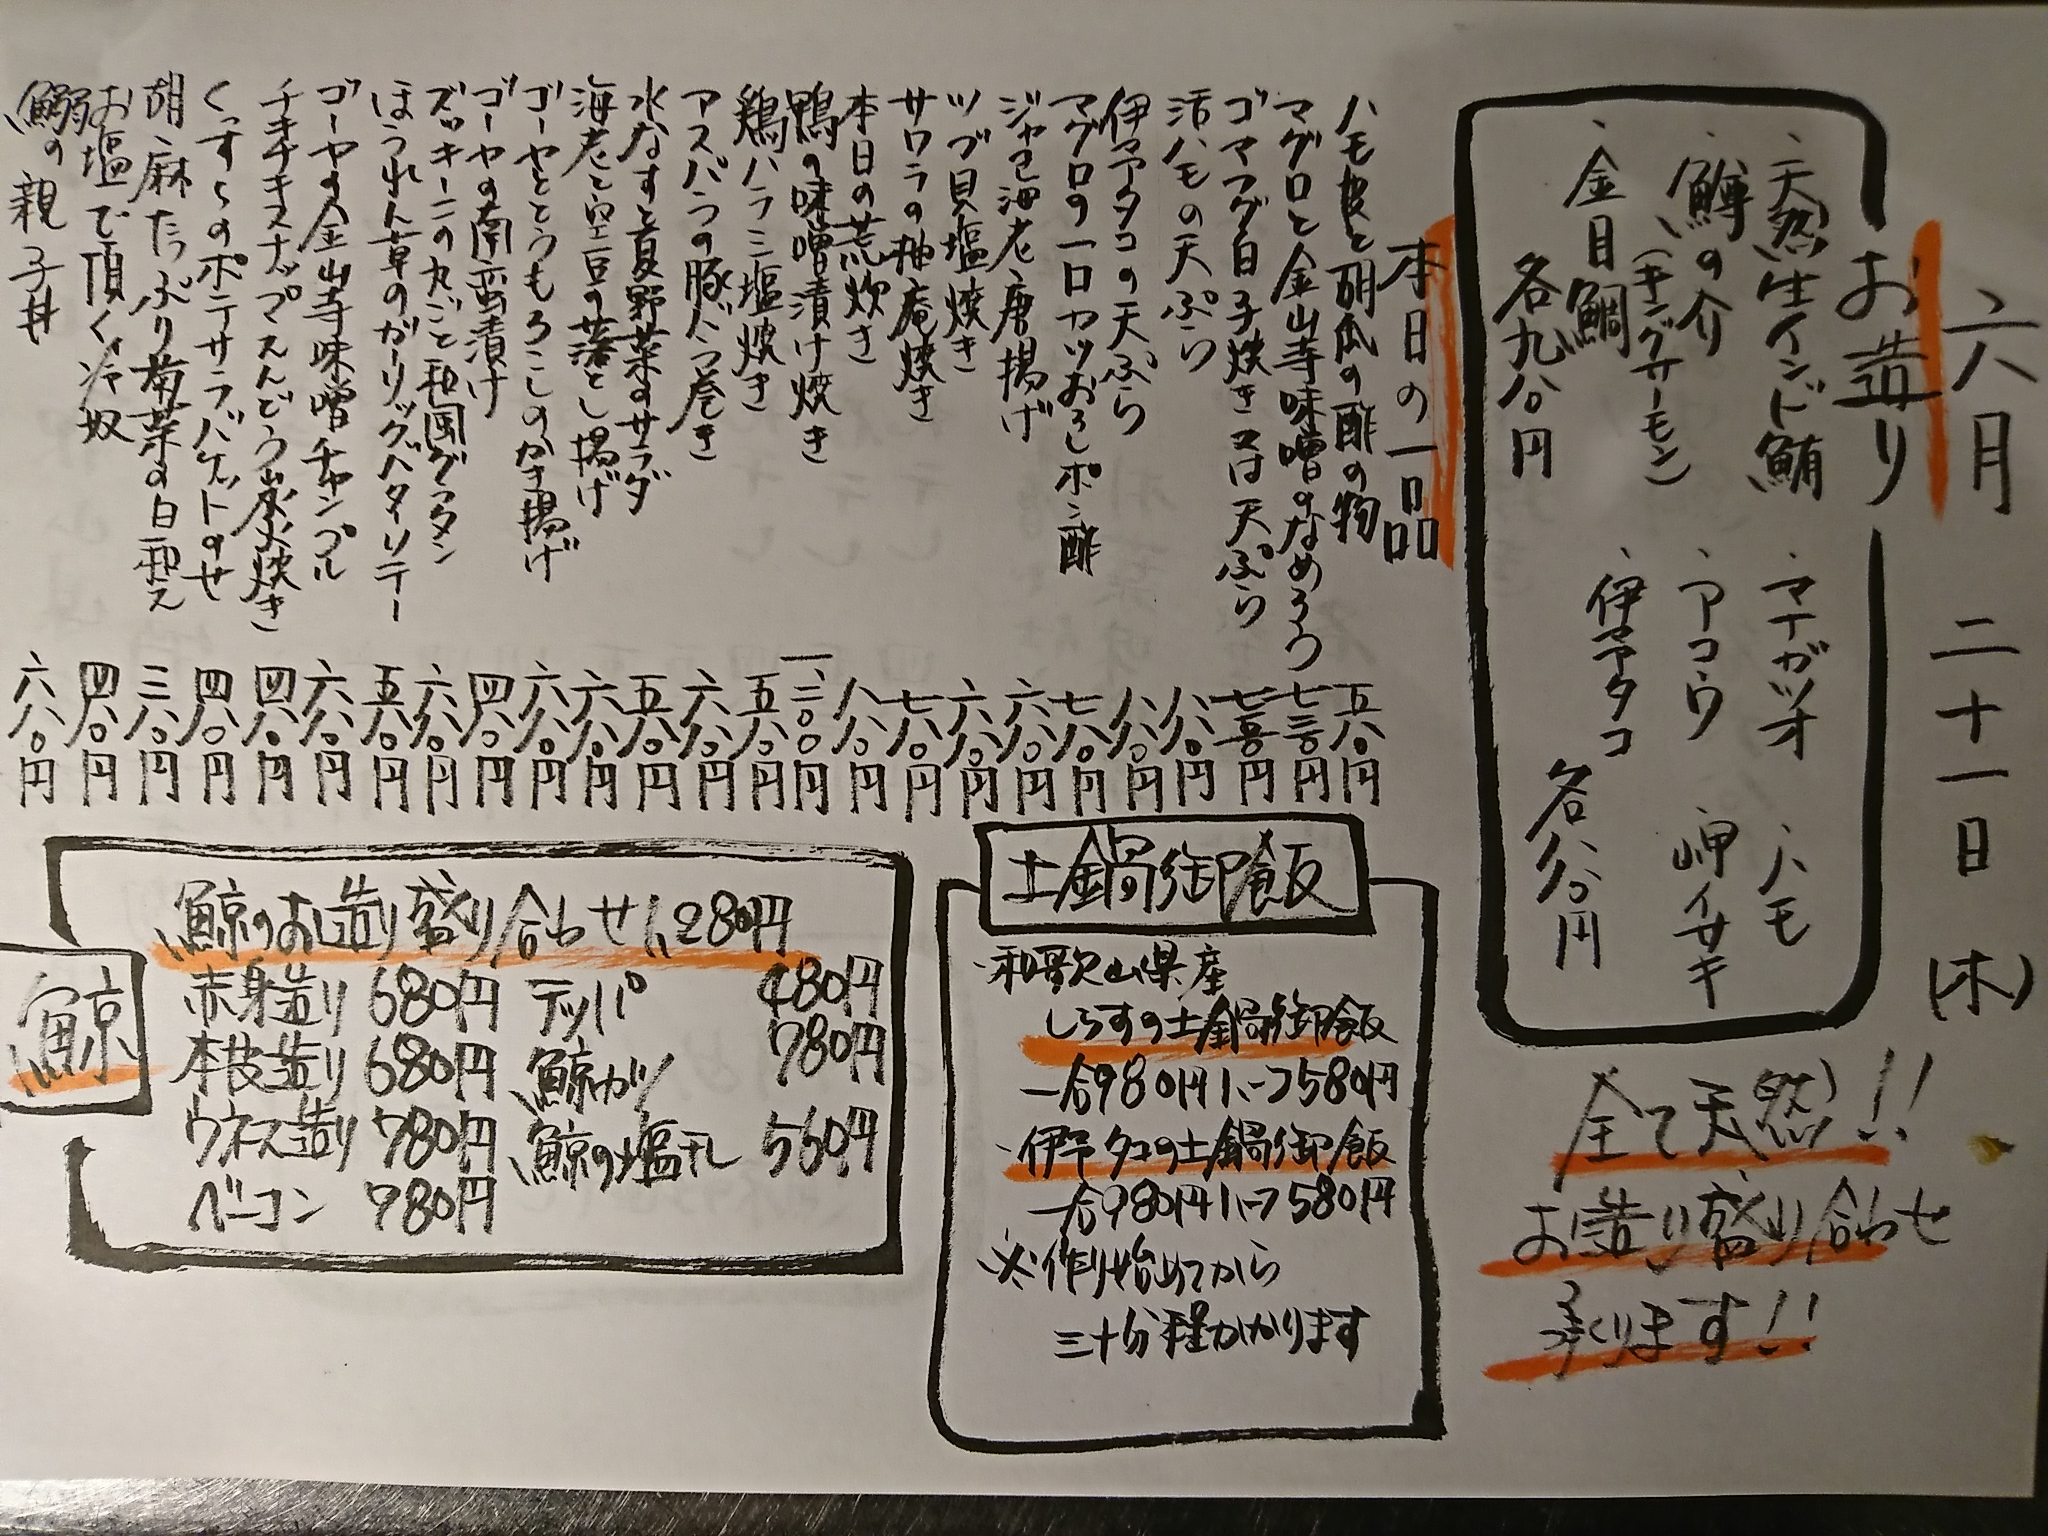 六月 二十一日 (木)
お造り
・天然生インド鮪
・鱒の介
(キングサーモン)
・金目鯛
各九八〇円
・マナガツオ ・ハモ
・アコウ ・岬イサキ
・伊予タコ
各八八〇円
全て天然!!
お造り盛り合わせ
承ります!!
本日の一品
ハモ皮と胡瓜の酢の物 五八〇円
マグロと金山寺味噌のなめろう 七三〇円
ゴマフグ白子焼き又は天ぷら
活ハモの天ぷら 八八〇円
伊予タコの天ぷら 八八〇円
マグロの一口カツおろしポン酢 七八〇円
ジャコ海老唐揚げ 六八〇円
ツブ貝塩焼き 六八〇円
サワラの柚庵焼き 七八〇円
本日の荒炊き 八八〇円
鴨の味噌漬け焼き 一、二〇〇円
鶏ハラミ塩焼き 五八〇円
アスパラの豚バラ巻き 六八〇円
水なすと夏野菜のサラダ 五八〇円
海老と空豆の落とし揚げ 六八〇円
ゴーヤとうもろこしのかき揚げ 六八〇円
ゴーヤの南蛮漬け 四八〇円
ズッキーニの丸ごと和風グラタン 六八〇円
ほうれん草のガーリックバターソテー 五八〇円
ゴーヤの金山寺味噌チャンプル 六八〇円
チキチキスナップえんどう炭火焼き 四八〇円
くっすんのポテサラバケットのせ 四八〇円
胡麻たっぷり菊菜の白和え 三八〇円
お塩で頂く冷奴 四八〇円
鰯の親子丼 六八〇円
土鍋御飯
・和歌山県産
しらすの土鍋御飯
一合980円 1.5合1580円
・伊予タコの土鍋御飯
一合980円 1.5合1580円
※作り始めてから
三十分程かかります
鯨
鯨のお造り盛り合わせ1,280円
赤身造り 680円 テッパ 480円
本皮造り 680円 鯨カツ 780円
ウネス造り 780円 鯨の塩干し 550円
ベーコン 780円